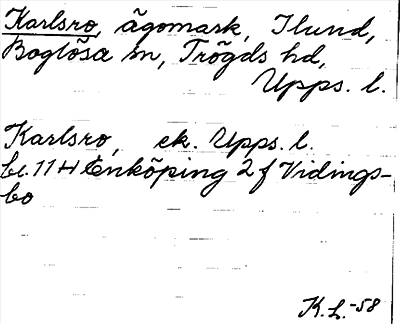 Karlsro, ägomark, Ilund,
Boglösa sn, Trögds hd,
Upps. l.
Karlsro, ek. Upps. l.
bl. 11 H Enköping 2 f Vidings-
bo
K.L.-58